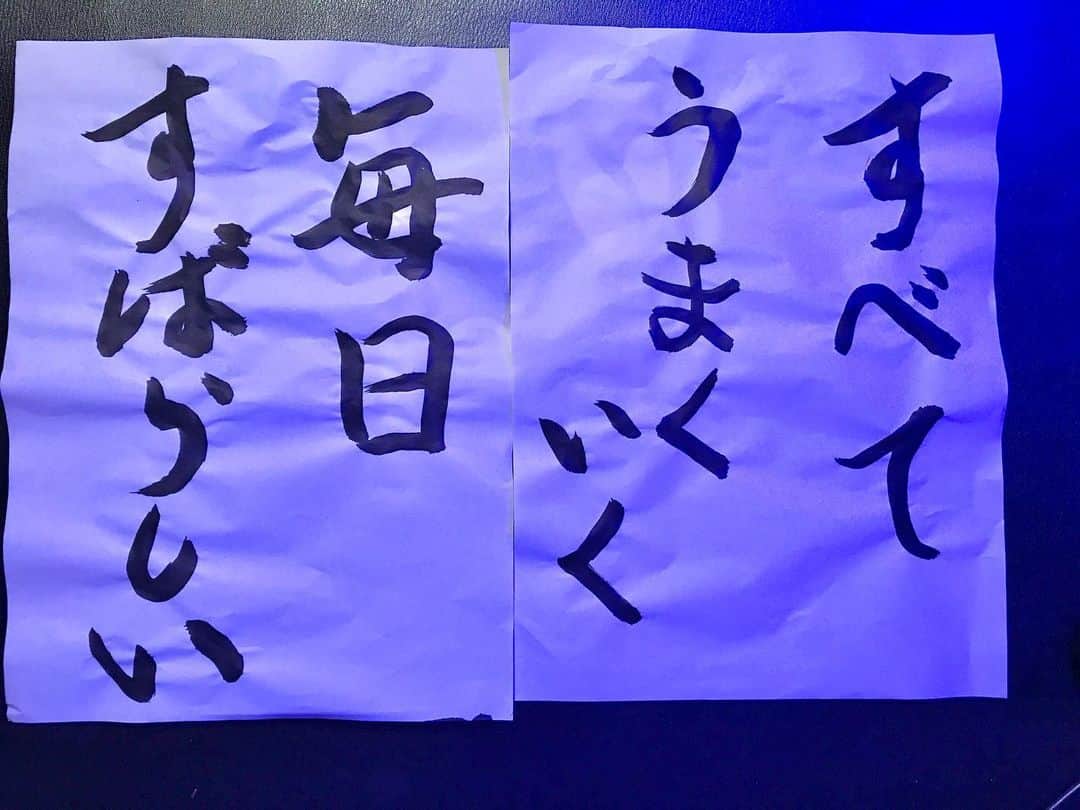 すべて
うまく
いく
毎日
すばらしい